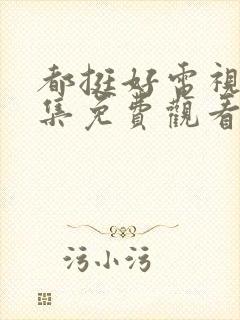 都挺好電視
集免費觀看
污小污